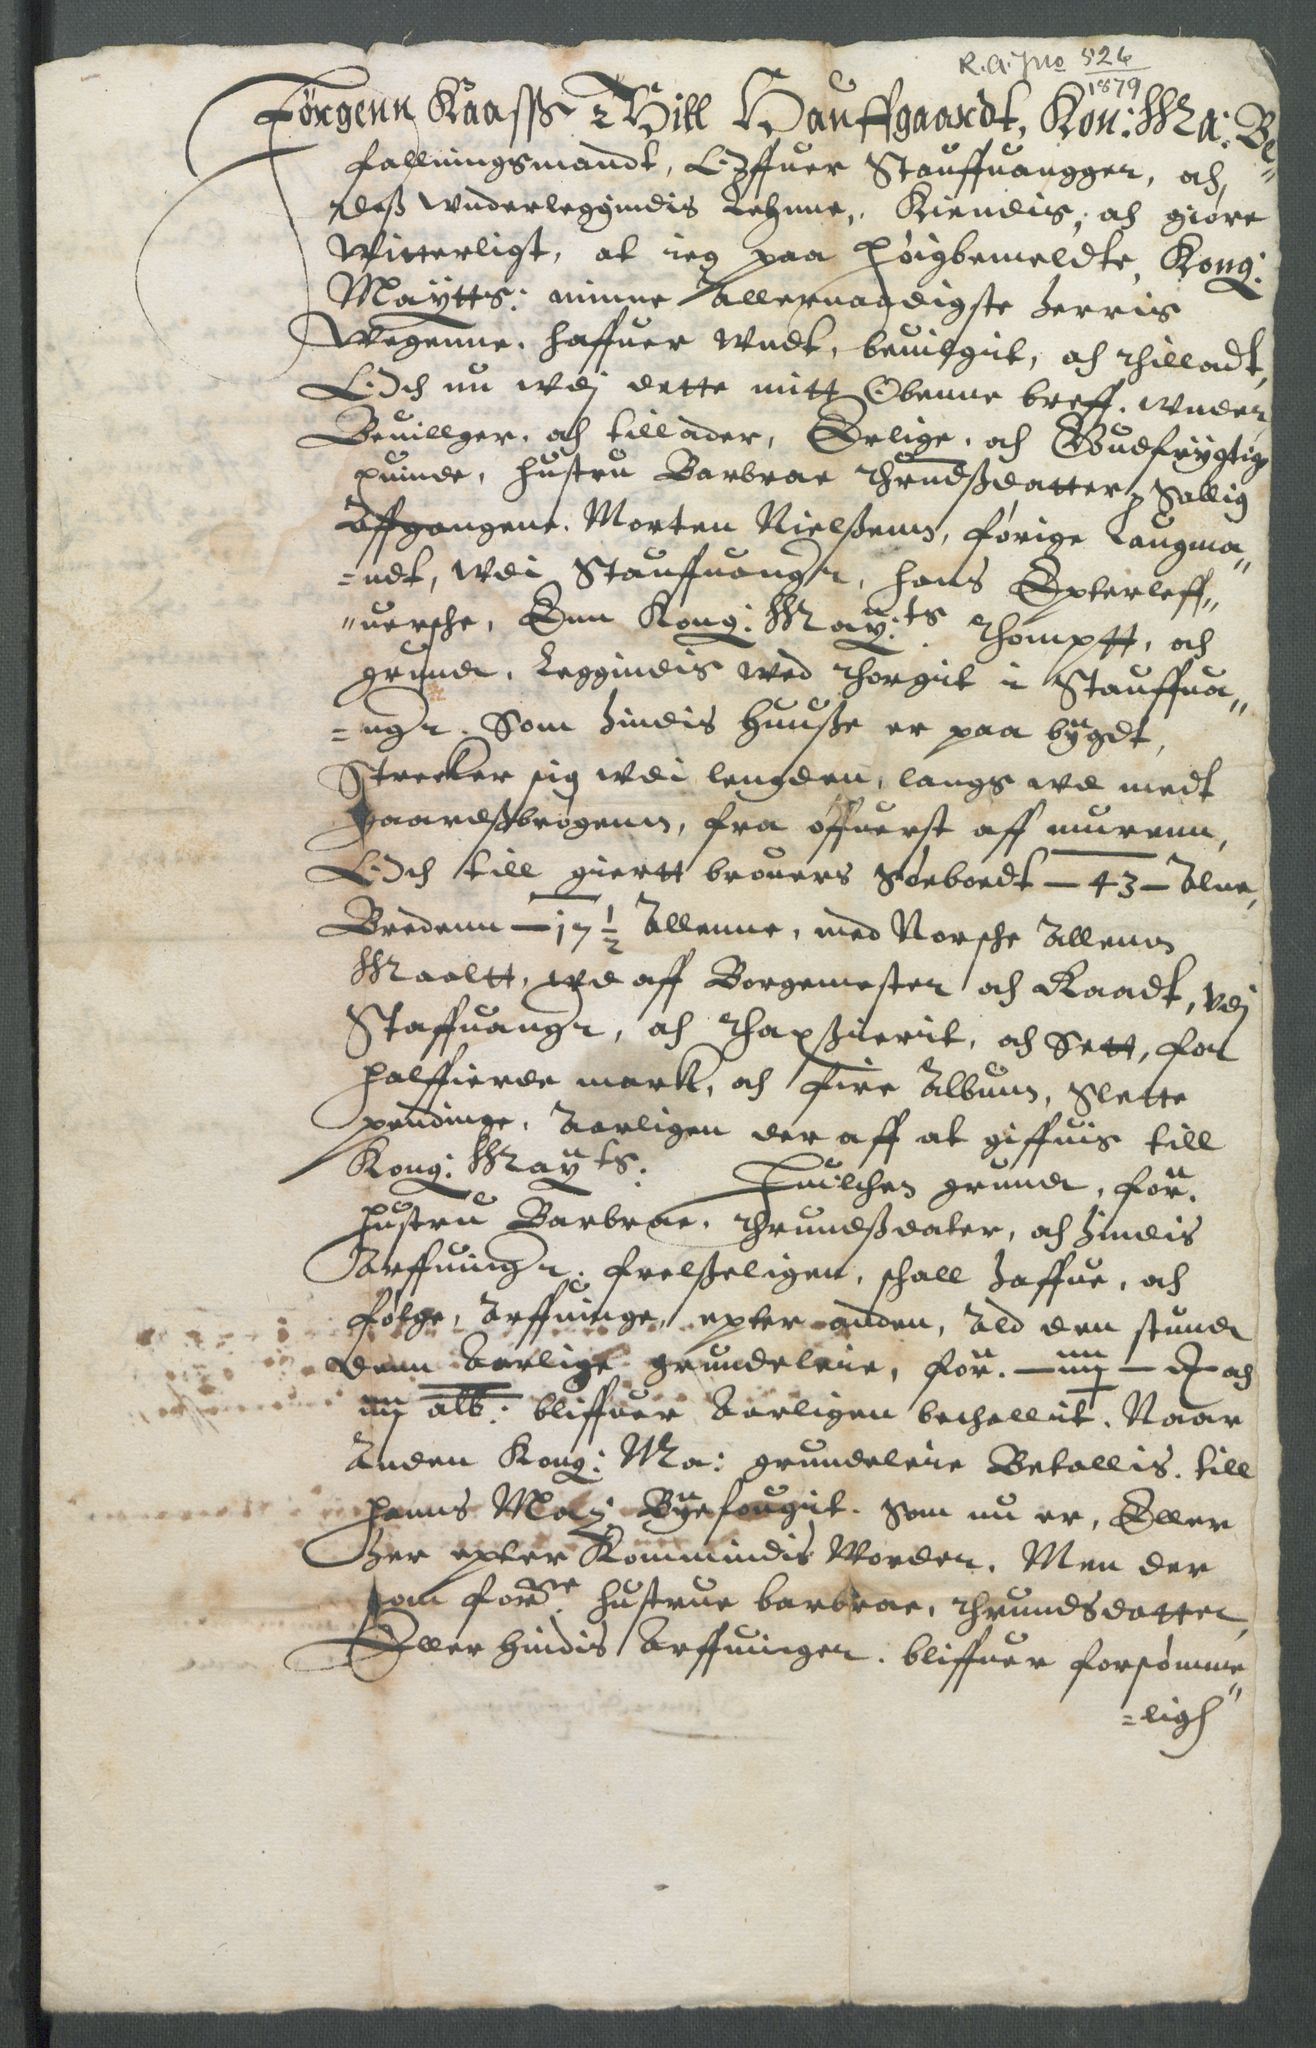 R.A. Jno 526
1879
Jørgenn Kaasß Till Hauffgaardt, Kon: Ma: Be„
falningsmandt, Offuer Stauffuangger, och
deß wnderleggindis Lehnne, Kiendis, och giøre
Witterligt, at ieg paa høigbemeldte Kong:
Maÿtts: minne Allernaadigste herris
Wegenne. haffuer wndt, beuilgit, och thilladt,
Och nu wdj dette mitt Obenne breff. wnder
Beuillger, och tillader, Erlige, och Gudfrÿgtige
quinde, hustru Barbrae thrundßdatter, Sallig
Affgangene. Morten Nielßenn, førige Laugma„
=ndt, wdi Stauffuangr, hans Epterleff„
„uersche, Enn Kong: Maÿ:ts thomptt, och
grundt, Leggindis wed thorgit i Stauffua„
=ngr. Som hindis Huuße er paa bÿgdt,
Strecker sig wdi lengden, langs wd medt
gaardßkrogenn, fra øffuerst aff murenn,
Och till giertt brouers Søebordt – 43 – Alne,
Bredenn – 17 1/2 Allenne, med Norsche Allenn
Maaltt, wd aff Borgemester och Raadt, vdj
Staffuangr, och thaxßierit, och Sett, for
halffierde mark, och fire Albumb, Slette
pendinge, Aarligen der aff at giffuis till
Kong: Maÿts: Huilchen grundt, for:
hustru Barbrae. thrundßdater, och hindis
Arffuingr. frelßeligen, schall haffue, och
følge, Arffuinge, epter anden, Ald den stundt
denn Aarlige grundeleie, for: – iiij – ₰ och
iiij alb: bliffuer Aarligen bethallit. Naar
Anden Kong: Ma: grundeleie Betallis. till
hanns Maÿ: Bÿefougit. som nu er, Eller
her epter Kommindis Worder. Men der
som for:ne hustrue barbrae, thrundsdatter,
Eller hindis Arffuinger. bliffuer forsømme„
=ligh